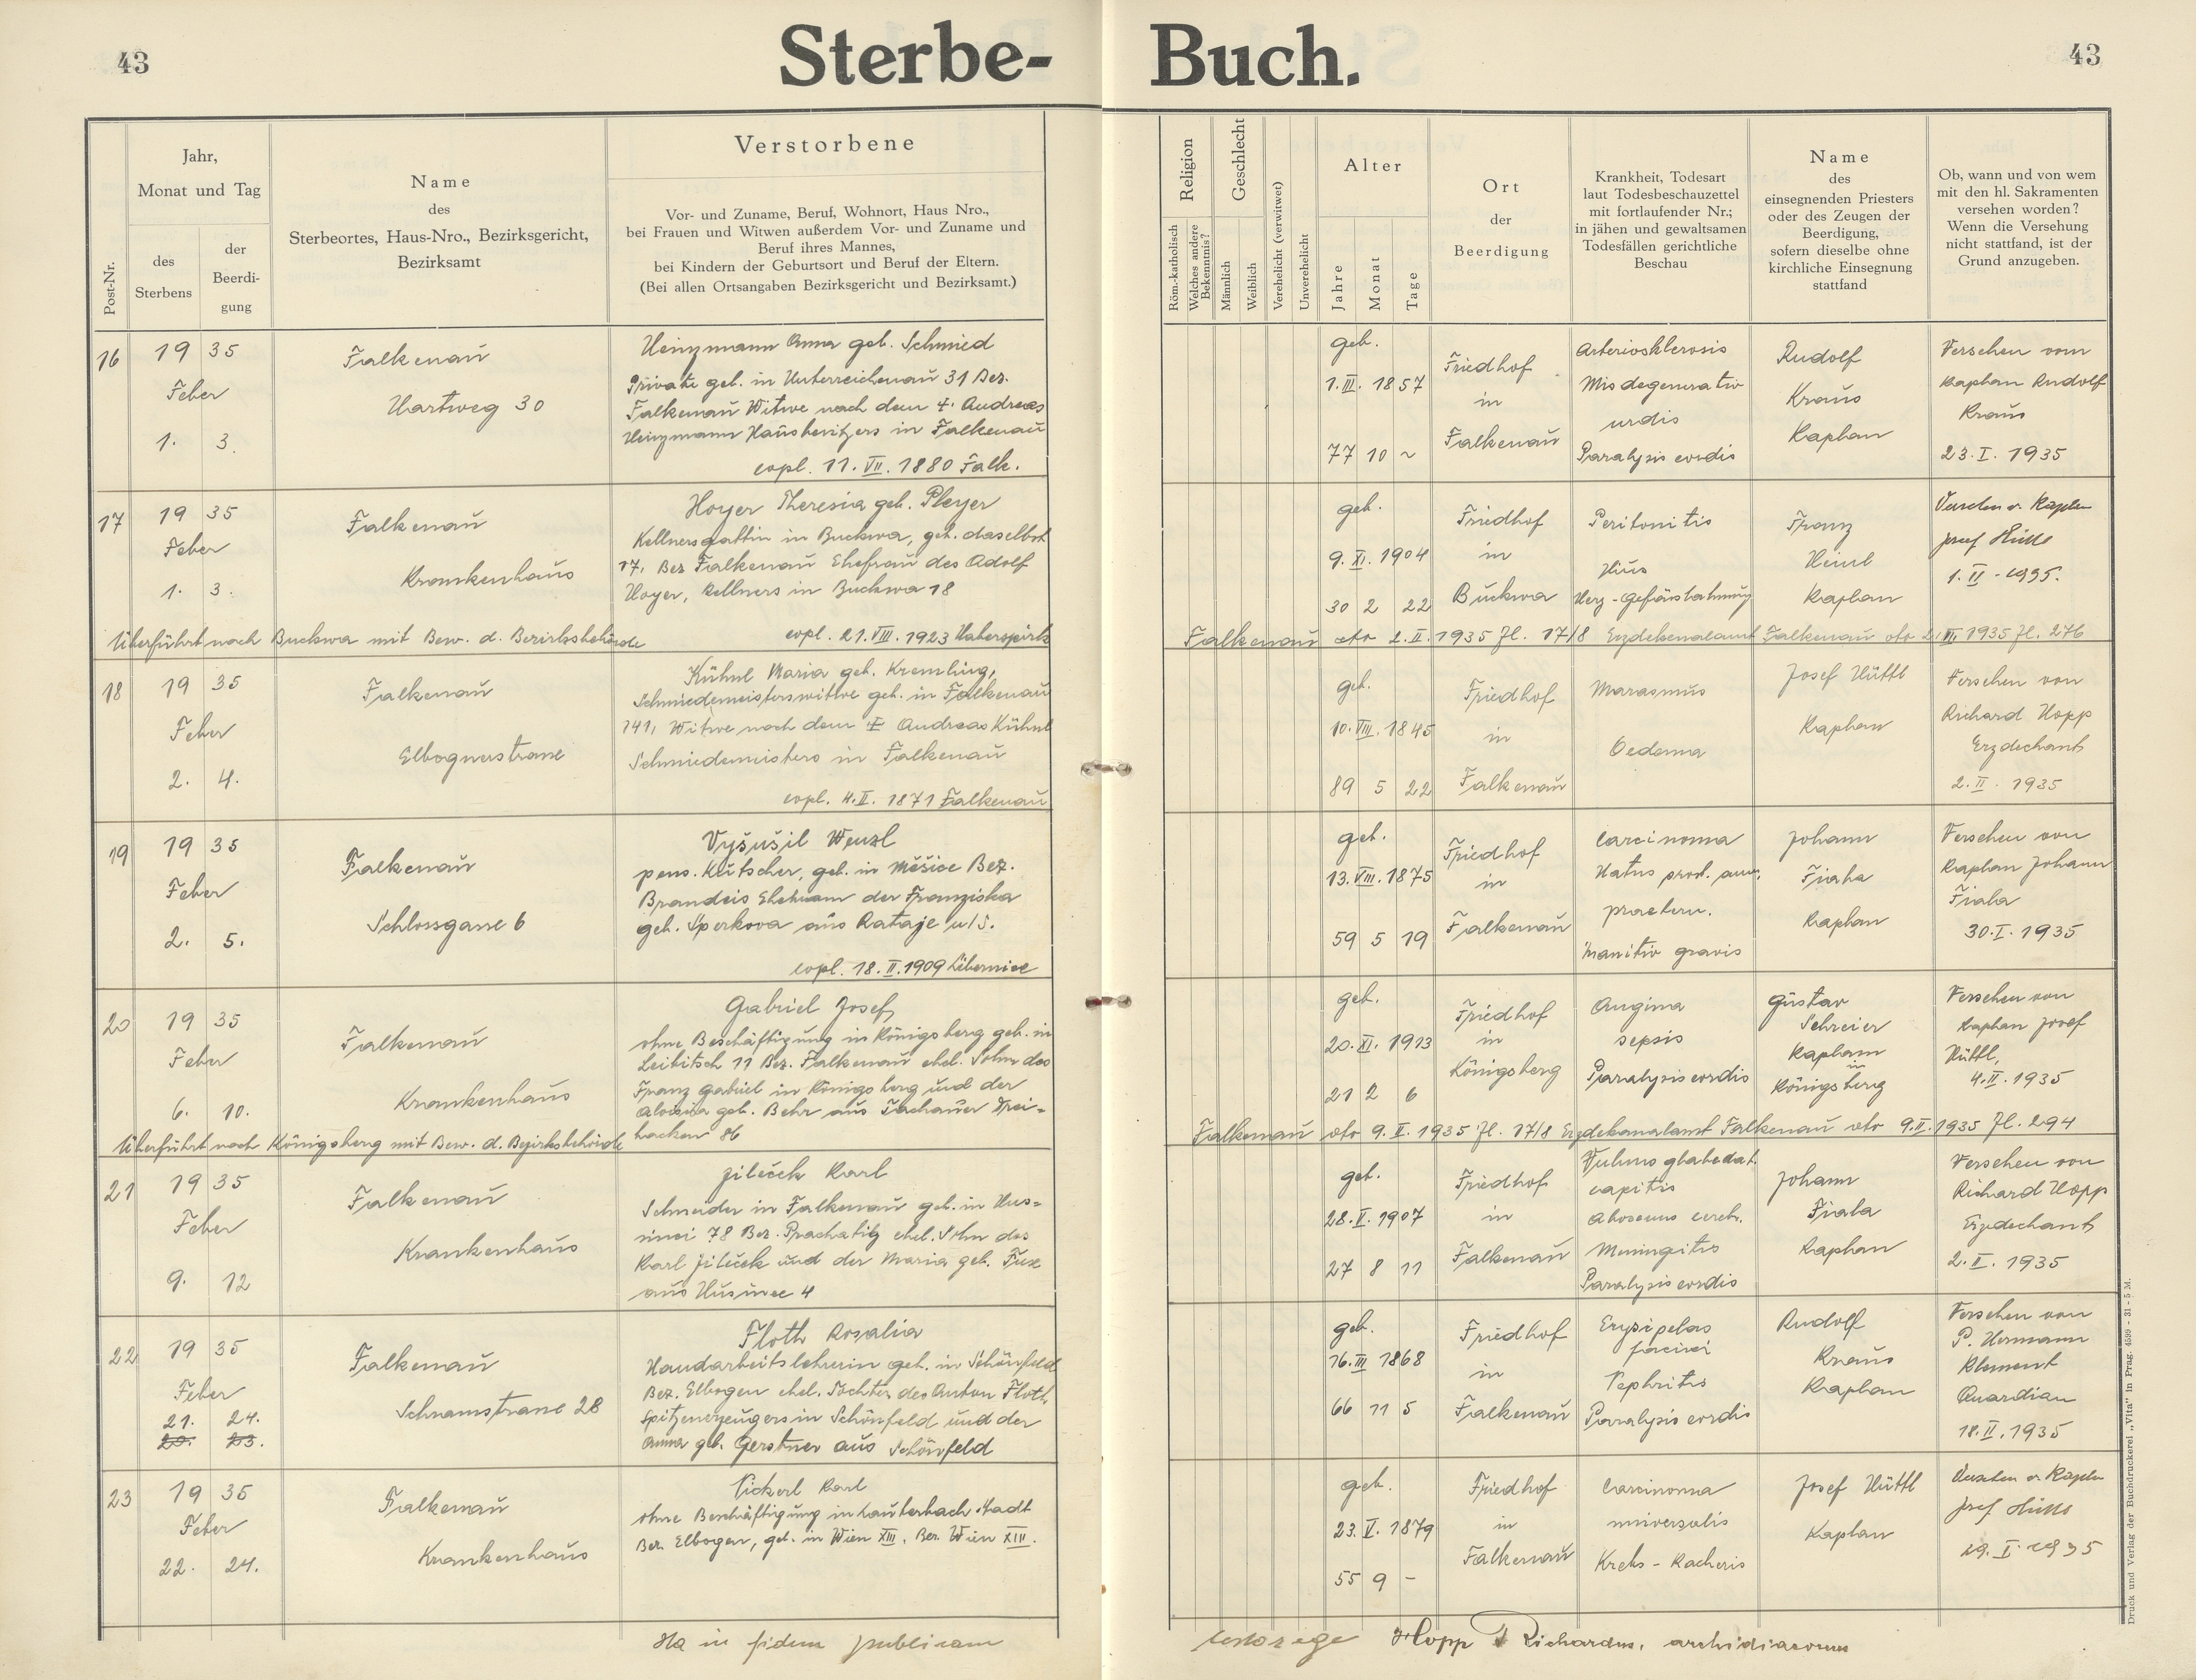 43
Sterbe-
Buch.
43
Post-Nr.
Jahr,
Monat und Tag
des
Sterbens
der
Beerdi-
gung
Name
des
Sterbeortes, Haus-Nro., Bezirksgericht,
Bezirksamt
Verstorbene
Vor- und Zuname, Beruf, Wohnort, Haus Nro.,
bei Frauen und Witwen außerdem Vor- und Zuname und
Beruf ihres Mannes,
bei Kindern der Geburtsort und Beruf der Eltern.
(Bei allen Ortsangaben Bezirksgericht und Bezirksamt.)
Religion
Röm.-katholisch
Welches andere
Bekenntnis?
Geschlecht
Männlich
Weiblich
Verehelicht (verwitwet)
Unverehelicht
Alter
Jahre
Monat
Tage
Ort
der
Beerdigung
Krankheit, Todesart
laut Todesbeschauzettel
mit fortlaufender Nr.;
in jähen und gewaltsamen
Todesfällen gerichtliche
Beschau
Name
des
einsegnenden Priesters
oder des Zeugen der
Beerdigung,
sofern dieselbe ohne
kirchliche Einsegnung
stattfand
Ob, wann und von wem
mit den hl. Sakramenten
versehen worden?
Wenn die Versehung
nicht stattfand, ist der
Grund anzugeben.
16
19 35
Feber
1. 3.
Falkenau
Hartweg 30
Heinzmann Anna geb. Schmied
Private geb. in Unterreichenau 31 Bez.
Falkenau Witwe nach dem † Andreas
Heinzmann Hausbesitzers in Falkenau
copl. 11. VII. 1880 Falk.
geb.
1. III. 1857
77 10 ~
Friedhof
in
Falkenau
Arteriosklerosis
Paralysis cordis
Rudolf
Kraus
Kaplan
Versehen vom
Kaplan Rudolf
Kraus
23. I. 1935
17
19 35
Feber
1. 3.
Falkenau
Krankenhaus
Hoyer Theresia geb. Pleyer
Kellnersgattin in Buckwa, geb. daselbst
17, Bez Falkenau Ehefrau des Adolf
Hoyer, Kellners in Buckwa 18
copl. 21. VIII. 1923 Haberspirk
geb.
9. XI. 1904
30 2 22
Friedhof
in
Buckwa
Peritonitis
Franz
Heinl
Kaplan
Versehen v. Kaplan
Josef Hüttl
1. II. 1935.
Überführt nach Buckwa mit Bew. d. Bezirksbehörde Falkenau dto 2. II. 1935 Zl. 17/8 Erzdekanalamt Falkenau dto 2. III. 1935 Zl. 276
18
19 35
Feber
2. 4.
Falkenau
Elbognerstrasse
Kühnl Maria geb. Kremling,
Schmiedemeisterswitwe geb. in Falkenau
141, Witwe nach dem † Andreas Kühnl
Schmiedemeisters in Falkenau
copl. 4. II. 1871 Falkenau
geb.
10. VIII. 1845
89 5 22
Friedhof
in
Falkenau
Marasmus
Oedema
Josef Hüttl
Kaplan
Versehen von
Richard Hopp
Erzdechant
2. II. 1935
19
19 35
Feber
2. 5.
Falkenau
Schlossgasse 6
Vyšušil Wenzl
pens. Kutscher, geb. in Měšice Bez.
Brandeis Ehemann der Franziska
geb. Sperkova aus Rataje u/S.
copl. 18. II. 1909
geb.
13. VIII. 1875
59 5 19
Friedhof
in
Falkenau
Carcinoma
gravis
Johann
Fiala
Kaplan
Versehen von
Kaplan Johann
Fiala
30. I. 1935
20
19 35
Feber
6. 10.
Falkenau
Krankenhaus
Gabriel Josef,
ohne Beschäftigung in Königsberg geb. in
Leibitsch 11 Bez. Falkenau ehel. Sohn des
Franz Gabriel in Königsberg und der
Aloisia geb. Behr aus Tachauer Brei-
hacken 86
geb.
20. XI. 1913
21 2 6
Friedhof
in
Königsberg
Angina
sepsis
Paralysis cordis
Gustav
Schreier
Kaplan
in
Königsberg
Versehen von
Kaplan Josef
Hüttl,
4. II. 1935
Überführt nach Königsberg mit Bew. d. Bezirksbehörde Falkenau dto 9. II. 1935 Zl. 17/8 Erzdekanalamt Falkenau dto 9. II. 1935 Zl. 294
21
19 35
Feber
9. 12
Falkenau
Krankenhaus
Jileček Karl
Schneider in Falkenau geb. in Hus-
sinec 78 Bez. Prachatig ehel. Sohn des
Karl Jileček und der Maria geb. Fux
aus Husinec 4
geb.
28. V. 1907
27 8 11
Friedhof
in
Falkenau
capitis
Meningitis
Paralysis cordis
Johann
Fiala
Kaplan
Versehen von
Richard Hopp
Erzdechant
2. II. 1935
22
19 35
Feber
21. 24.
20. 23.
Falkenau
Schramstrasse 28
Floth Rosalia
Handarbeitslehrerin geb. in Schönfeld
Bez. Elbogen ehel. Tochter des Anton Floth,
Spitzenerzeugers in Schönfeld und der
Anna geb. Gerstner aus Schönfeld
geb.
16. III 1868
66 11 5
Friedhof
in
Falkenau
Erysipelas
faciei
Nephritis
Paralysis cordis
Rudolf
Kraus
Kaplan
Versehen von
P. Hermann
Klement
Quardian
18. II. 1935
23
19 35
Feber
22. 24.
Falkenau
Krankenhaus
Pickerl Karl
ohne Beschäftigung in Lauterbach Stadt
Bez. Elbogen, geb. in Wien XIII. Bez. Wien XIII.
geb.
23. V. 1879
55 9 -
Friedhof
in
Falkenau
Carcinoma
universalis
Krebs - Kachexis
Josef Hüttl
Kaplan
Versehen v. Kaplan
Josef Hüttl
29. I. 1935
Ita in fidem publicam
Hopp Richardus, archidiaconus
Druck und Verlag der Buchdruckerei „Vita" in Prag. 4599 - 31 - 5 M.